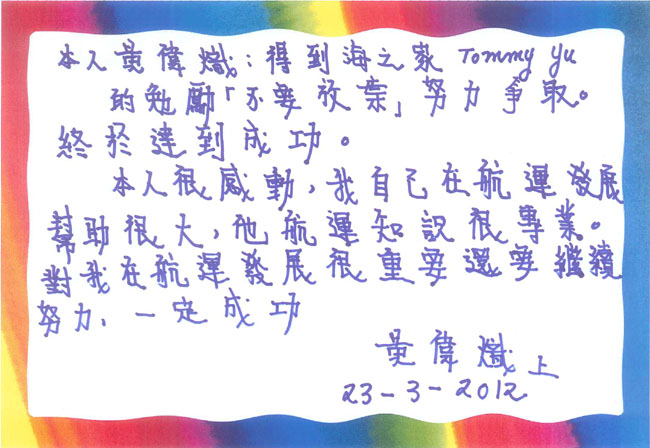 本人黃偉熾：得到海之家 Tommy Yu
的勉勵「不要放棄」努力爭取。
終於達到成功。
本人很感動，我自己在航運發展
幫助很大，他航運知訊很專業。
對我在航運發展很重要還要繼續
努力、一定成功
黃偉熾上
23-3-2012